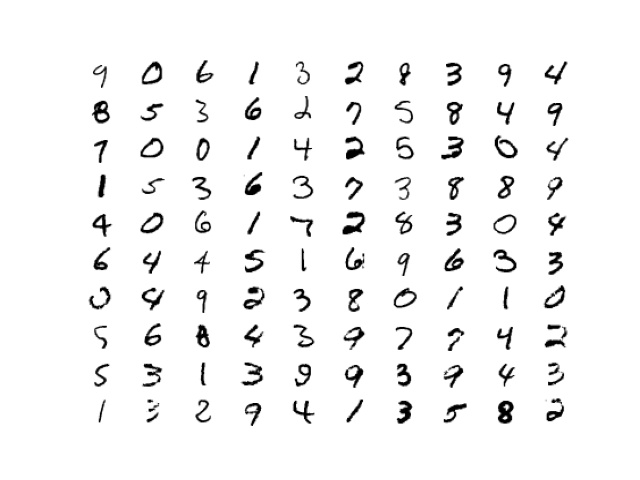 9 0 6 1 3 2 8 3 9 4
8 5 3 6 2 7 5 8 4 9
7 0 0 1 4 2 5 3 0 4
1 5 3 6 3 7 3 8 8 9
4 0 6 1 7 2 8 3 0 4
6 4 4 5 1 6 9 6 3 3
0 4 9 2 3 8 0 1 1 0
5 6 8 4 3 9 7 7 4 2
5 3 1 3 9 9 3 9 4 3
1 3 2 9 4 1 3 5 8 2